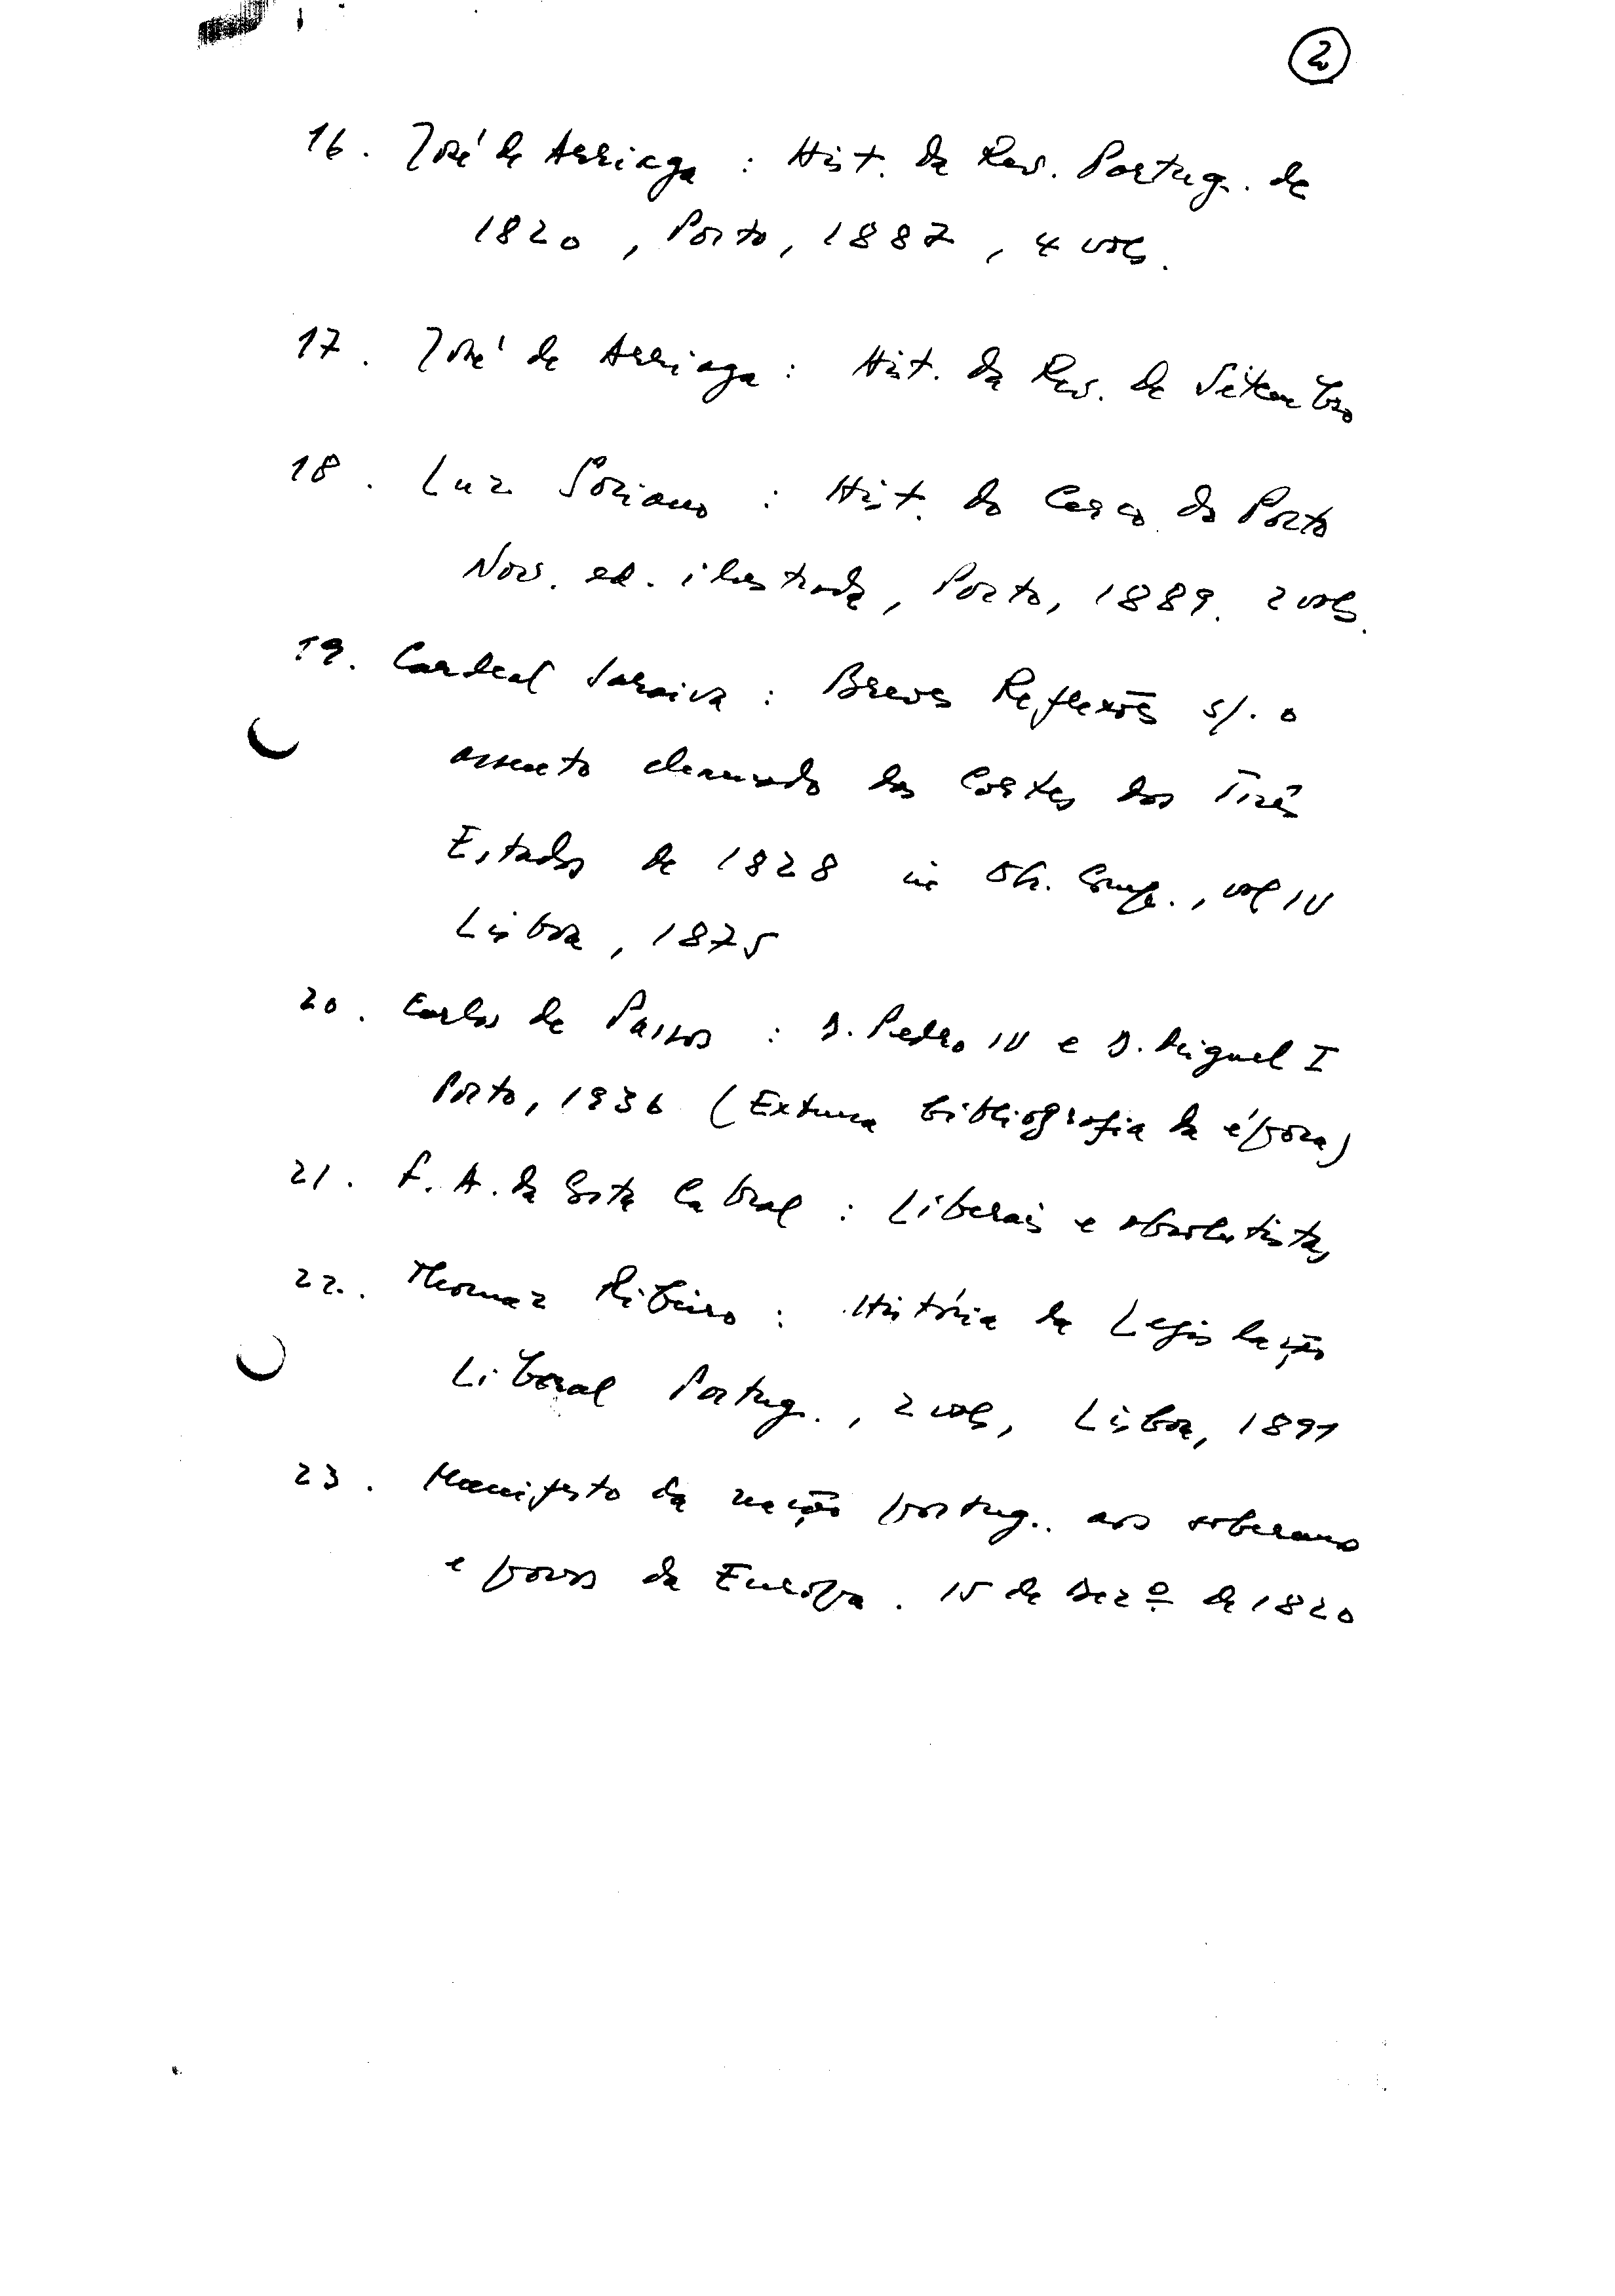 2
16. José de Arriaga : Hist. da Rev. Portug. de
1820, Porto, 1887, 4 vols.
17. José de Arriaga : Hist. da Rev. de Setembro
18. Luz Soriano : Hist. do Cerco do Porto
Nov. ed. ilustrada, Porto, 1889. 2 vols.
19. Cardeal Saraiva : Breves Reflexões s/. o
assento chamado dos Cortes dos Três
Estados de 1828 in Ob. Comp., vol IV
Lisboa, 1875
20. Carlos de Passos : D. Pedro IV e D. Miguel I
Porto, 1936 (Extensa bibliografia da época)
21. F. A. da Costa Cabral : Liberais e absolutistas
22. Thomaz Ribeiro : História da Legislação
Liberal Portug., 2 vols, Lisboa, 1891
23. Manifesto da nação portug. aos soberanos
e povos da Europa. 15 de Dezº de 1820